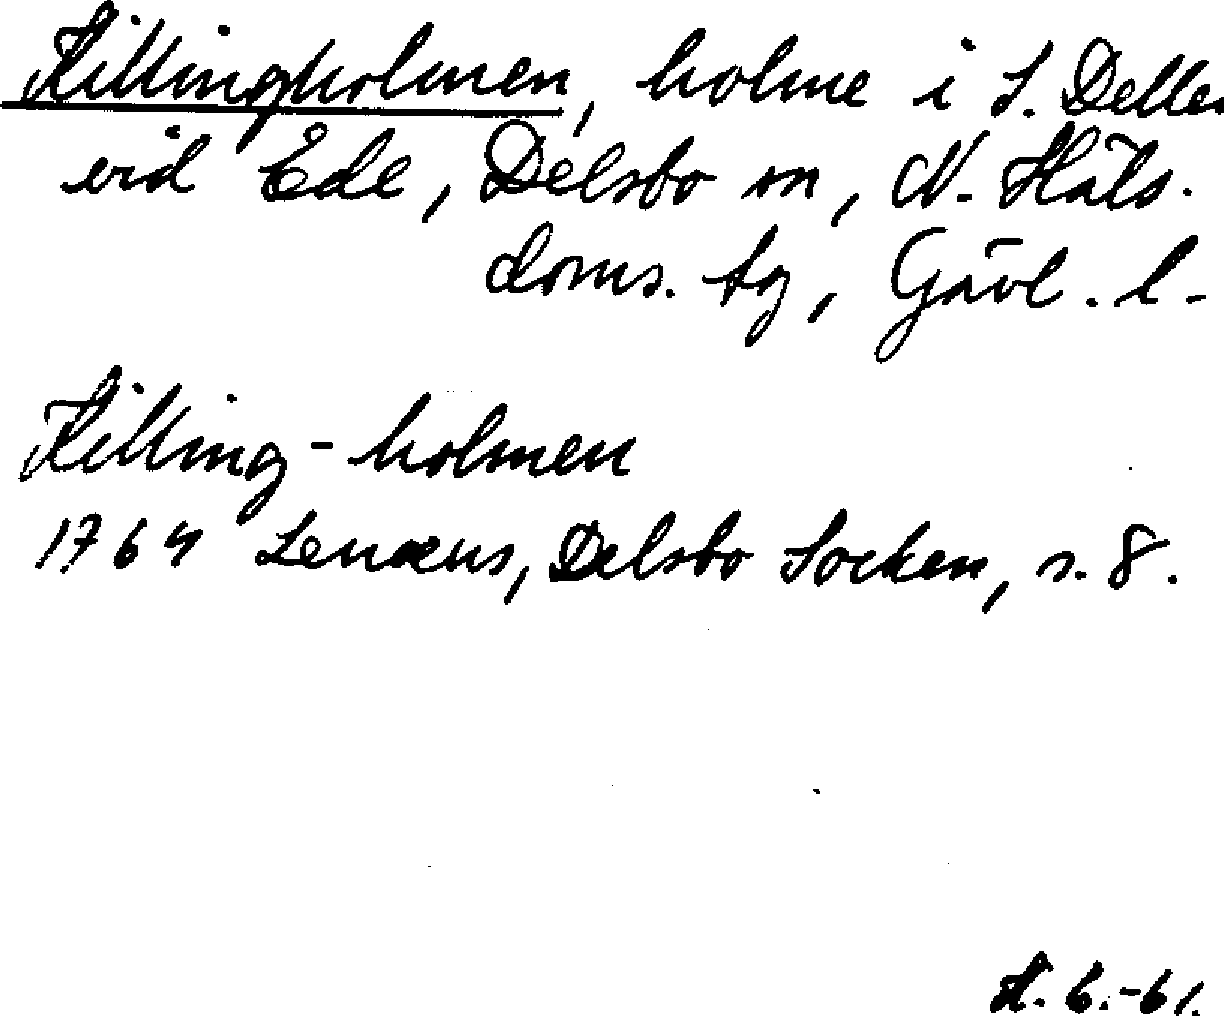 Killingholmen, holme i S. Dellen
vid Ede, Delsbo sn, N. Häls.
doms. tg, Gävl. l.
Killing-holmen
1764 Lenæus, Delsbo Socken, s. 8.
H. G.-61.